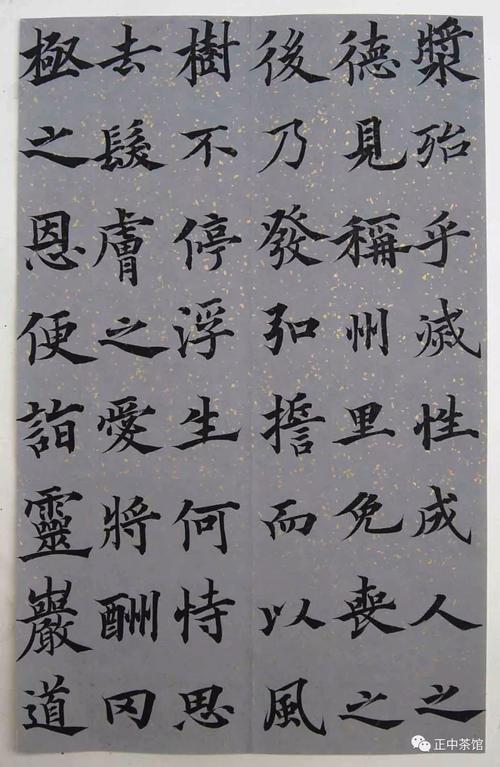 漿殆乎滅性成人之
德見稱州里免喪之
後乃發弘擔而以風
樹不停浮生何恃思
去髮膚之愛將酬罔
極之恩便詣靈巖道
正中茶馆